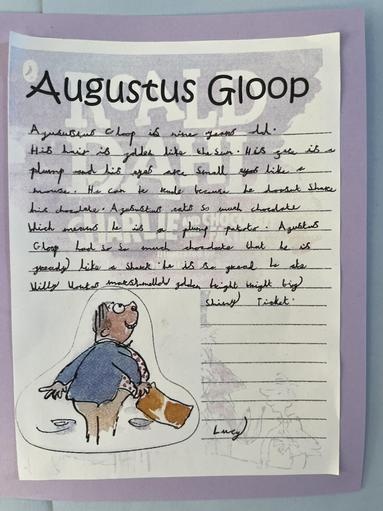 Augustus Gloop
Agusustus Gloop is nine years old.
His hair is golden like the sun. His face is a
plump and his eyes are small eyes like a
mouse. He can be rude because he doesnt share
his chocolate. Augustus eats so much chocolate
which means he is a plump potato. Agustus
Gloop had so so much chocolate that he is
greedy like a shark. he is so greed he ate
Willy Wonkas marshmellow golden bright bright big
shiny Ticket.
Lucy